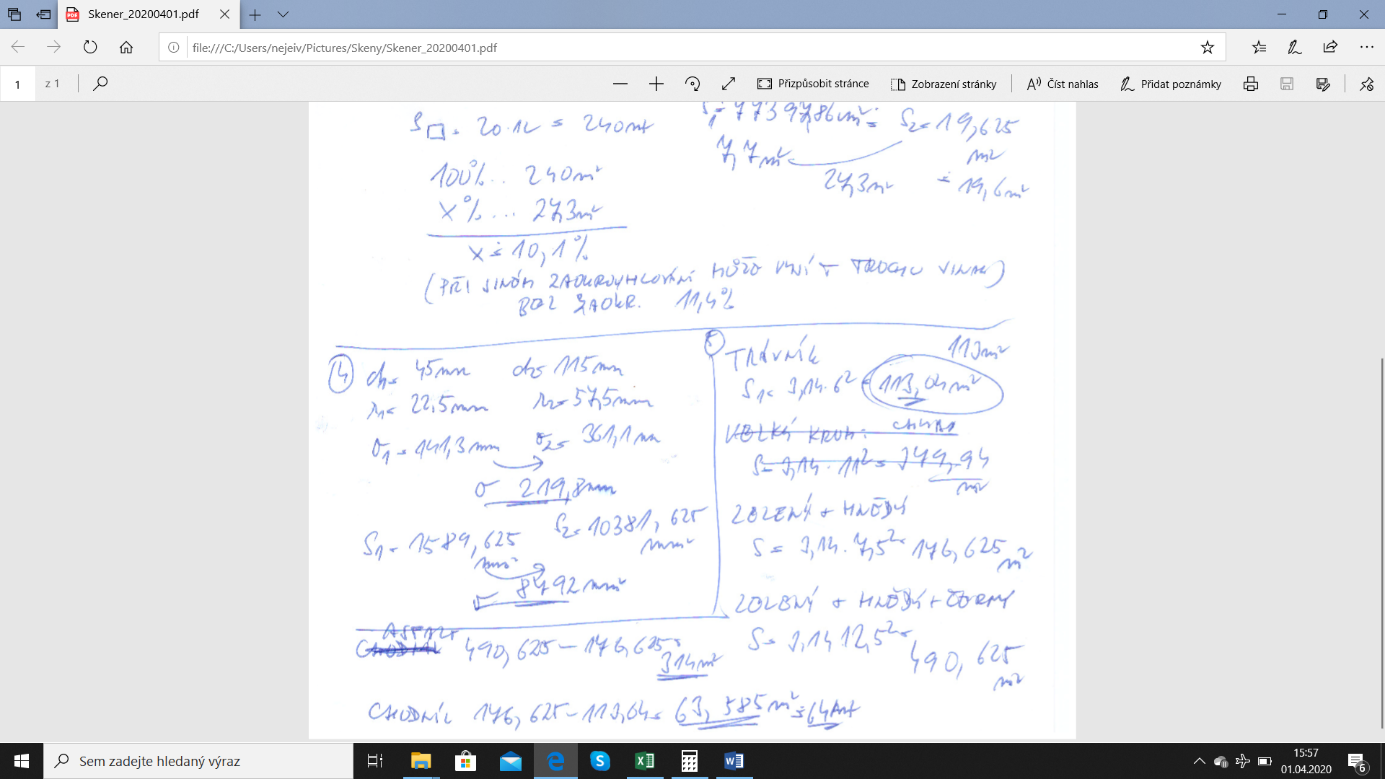 Skener_20200401.pdf
file:///C:/Users/nejeiv/Pictures/Skeny/Skener_20200401.pdf
1 z 1 Přizpůsobit stránce Zobrazení stránky Číst nahlas Přidat poznámky
S□ = 20·12 = 240m²
S₁ = 77397,86cm² =
7,7m²
S₂ = 19,625
m²
≐ 19,6m²
27,3m²
100% ... 240m²
X% ... 27,3m²
x ≐ 10,1%
(PŘI JINÉM ZAOKROUHLOVÁNÍ MŮŽE VYJÍT TROCHU JINAK)
BEZ ZAOKR. 11,4%
4 d₁= 45mm d₂= 115mm
r₁= 22,5mm r₂= 57,5mm
o₁ = 141,3mm o₂= 361,1mm
219,8mm
S₁ = 1589,625
mm²
S₂= 10381,625
mm²
8792mm²
TRÁVNÍK
113m²
S₁= 3,14·6² = 113,04m²
VELKÝ KRUH:
S= 3,14·11² = 379,94
m²
ZELENÝ + HNĚDÝ
S= 3,14·7,5² = 176,625
m²
ZELENÝ + HNĚDÝ + ČERNÝ
S= 3,14 12,5² =
490,625
m²
490,625 − 176,625 =
314m²
CHODNÍK 176,625 − 113,04 = 63,585m² ≐ 64m²
Sem zadejte hledaný výraz
15:57
01.04.2020
6